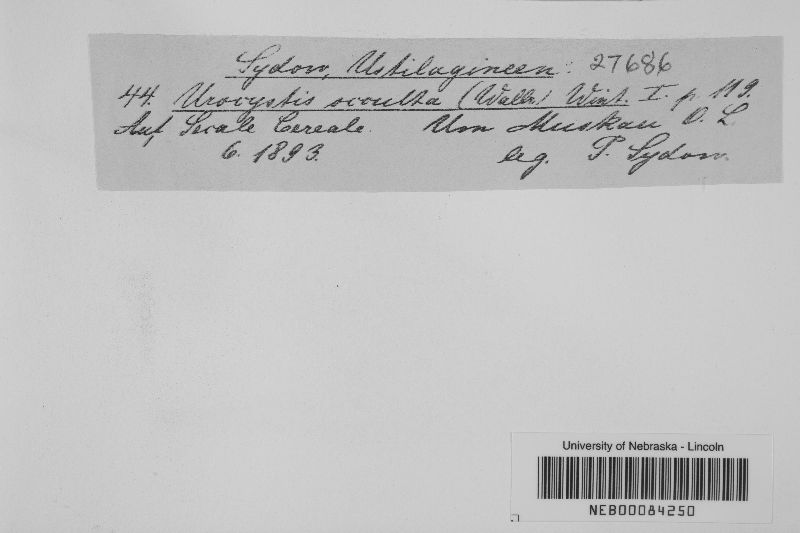 Sydow, Ustilagineen. 27686
44. Urocystis occulta (Wallr.) Wint. I. p. 119.
Auf Secale Cereale. Um Muskau O. L.
6. 1893. leg. P. Sydow.
University of Nebraska - Lincoln
NEB00084250